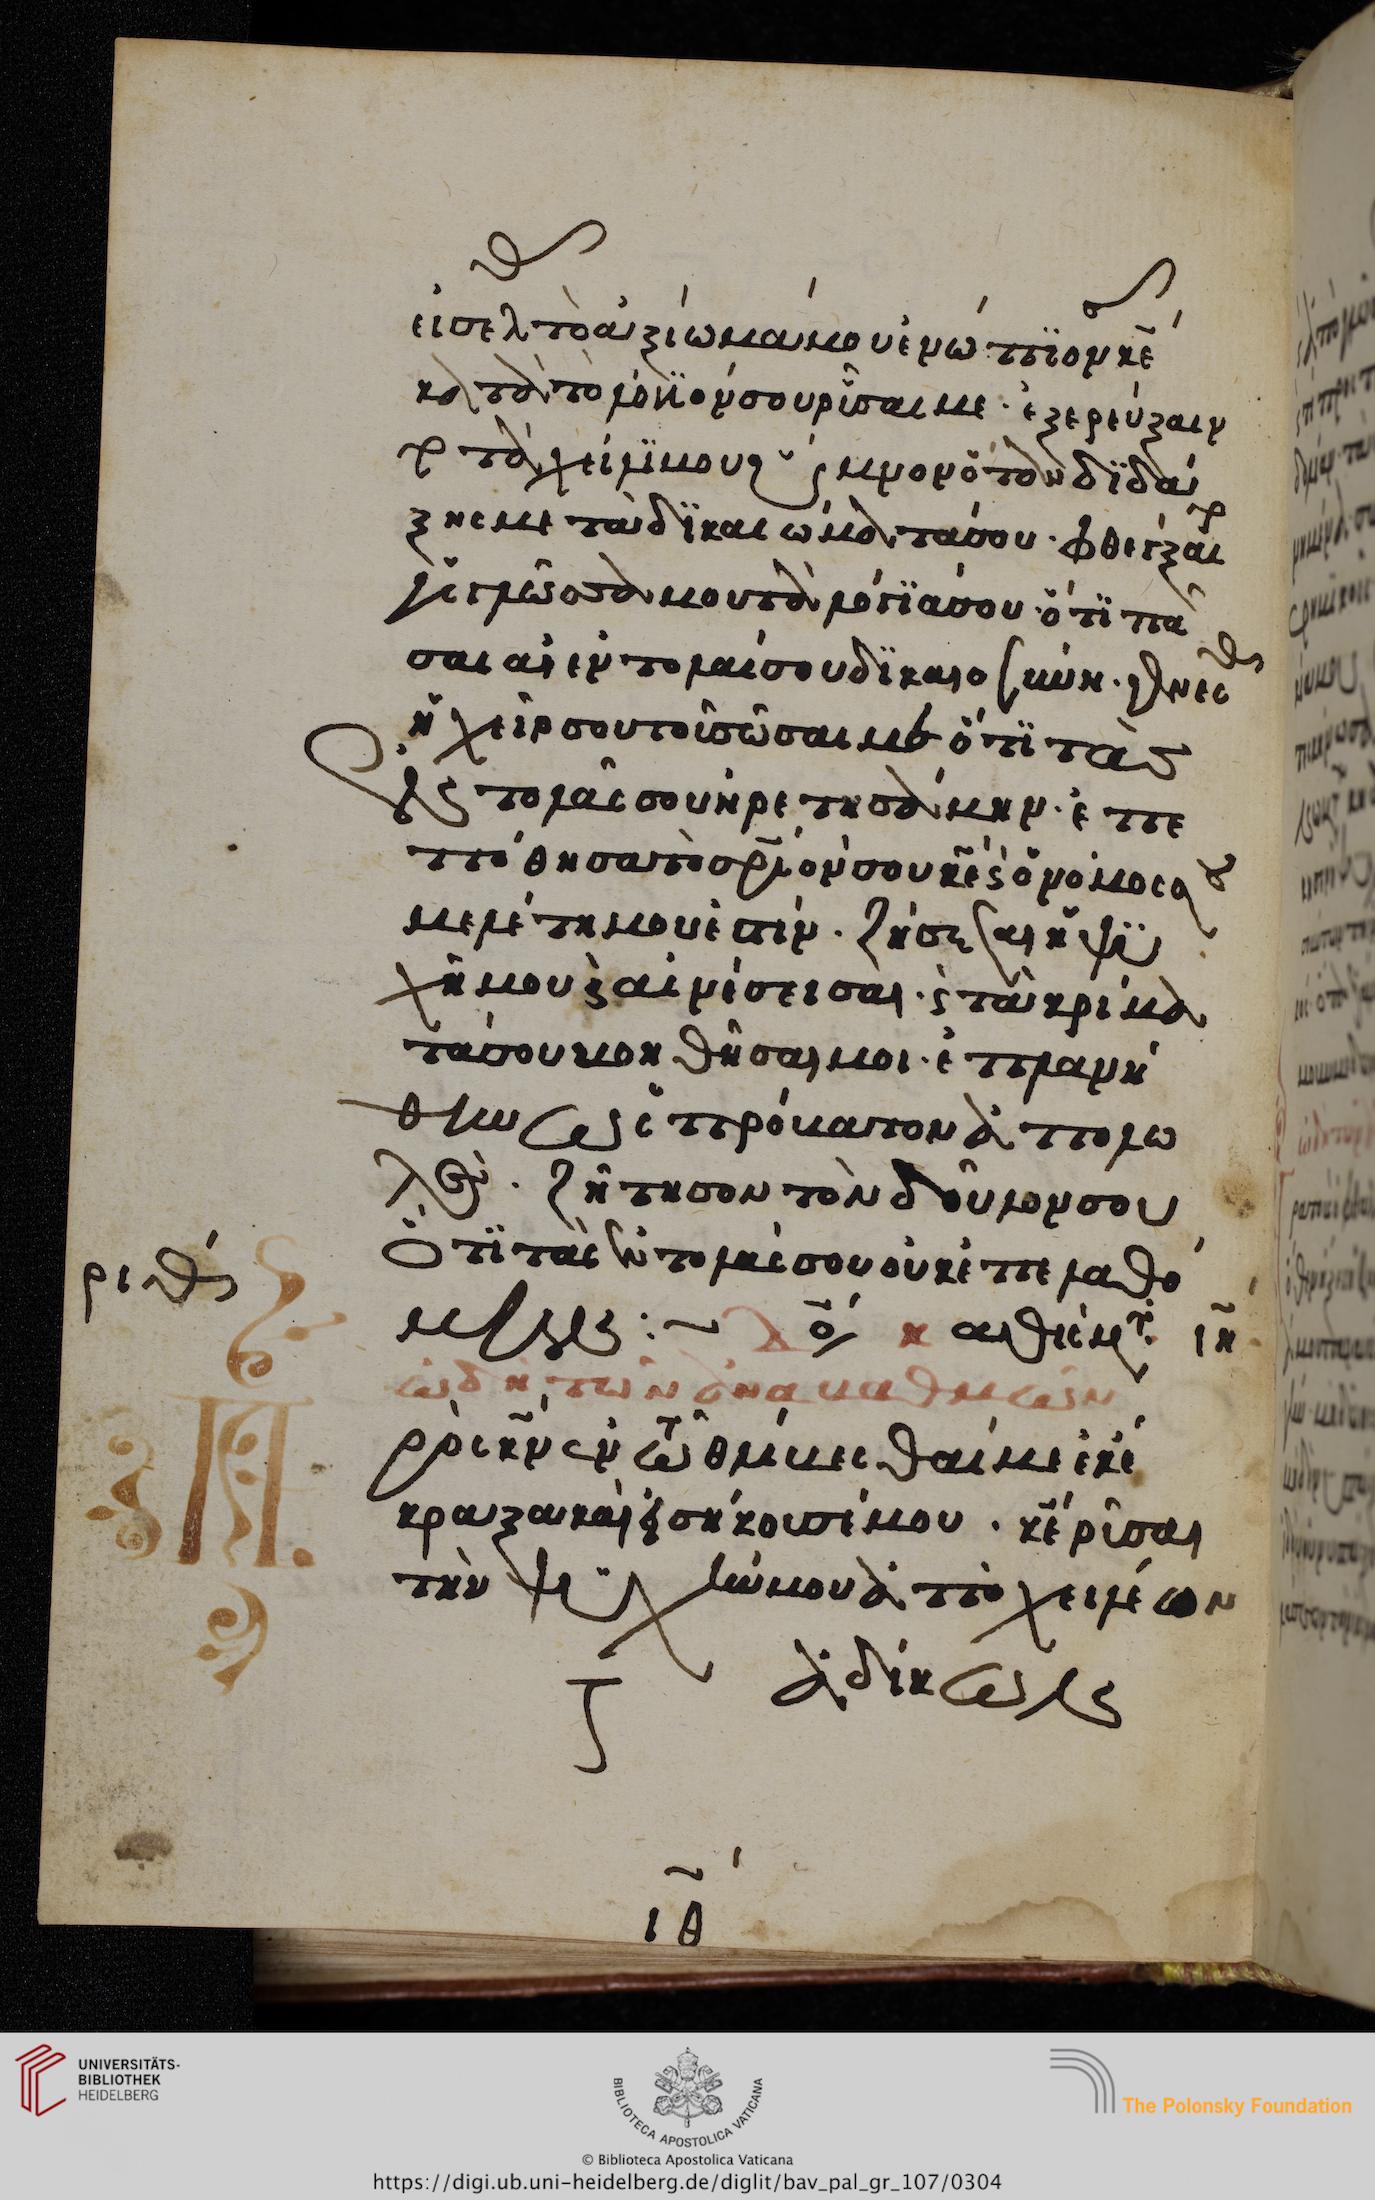 εἰσελθ τὸ ἀξίωμά μου ἐνώπϊόν σ κ̅ε̅
κατὰ τὸ λόγϊόν σου ρῦσαι με· ἐξερεύξαιν
τ τὰ χείλη μου ὕμνον ὅταν δϊδά
ξης με τὰ δϊκαιώματά σου· φθέγξαιτ
ἡ γλῶσσά μου τὰ λόγϊά σου· ὅτϊ πᾶ
σαι αἱ ἐντολαί σου δϊκαιοσύνη· γενέσθ
ἡ χείρ σου τοῦ σῶσαι με ὅτϊ τὰς
ἐντολάς σου ἡρετησάμην· ἐπε
πόθησα τὸ σ̅ρ̅ιόν σου κ̅ε̅ ς ὁ νόμος σου
μελέτη μου ἐστίν· ζήσεται ἡ ψϋ
χή μου ς αἰνέσει σαι· ς τὰ κρίμα
τά σου βοηθήσαι μοι· ἐπλανή
θην ὡς πρόβατον ἀπολω
λός· ζήτησον τὸν δοῦλον σου
ὅτϊ τὰς ἐντολάς σου οὐκ ἐπελαθό
ριθ
μην :~ ιη
ὠδὴ τῶν ἀναβαθμῶν
Πρὸς κ̅ν̅ ἐν τῶ θλίβεσθαί με ἐκέ
κραξα καὶ εἰσήκουσέ μου · κ̅ε̅ ρῦσαι
τὴν ψϋχήν μου ἀπὸ χειλέων
ἀδίκων
ιθ
UNIVERSITÄTS-
BIBLIOTHEK
HEIDELBERG
BIBLIOTECA APOSTOLICA VATICANA
The Polonsky Foundation
© Biblioteca Apostolica Vaticana
https://digi.ub.uni-heidelberg.de/diglit/bav_pal_gr_107/0304